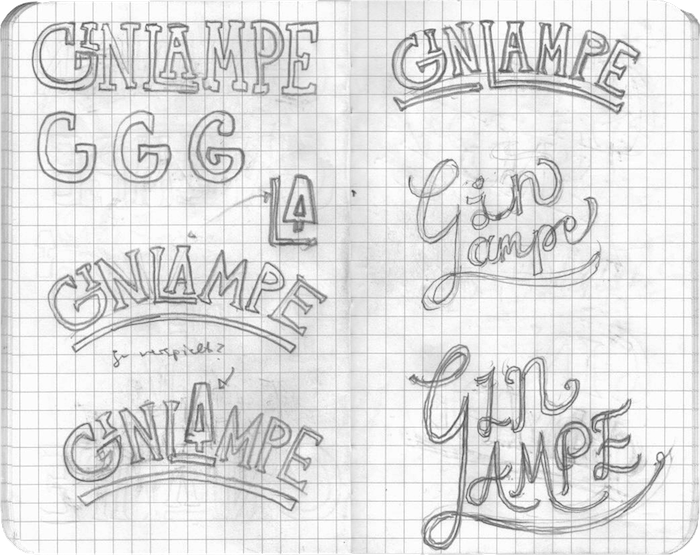 GINLAMPE
G G G
LA
GINLAMPE
zu verspielt?
GINLAMPE
GINLAMPE
Gin
Lampe
GIN
LAMPE